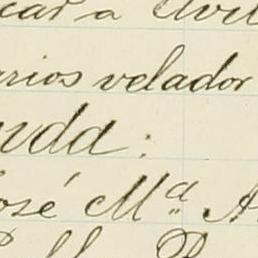 car a Avil
arios velador
uda:
José Mª A